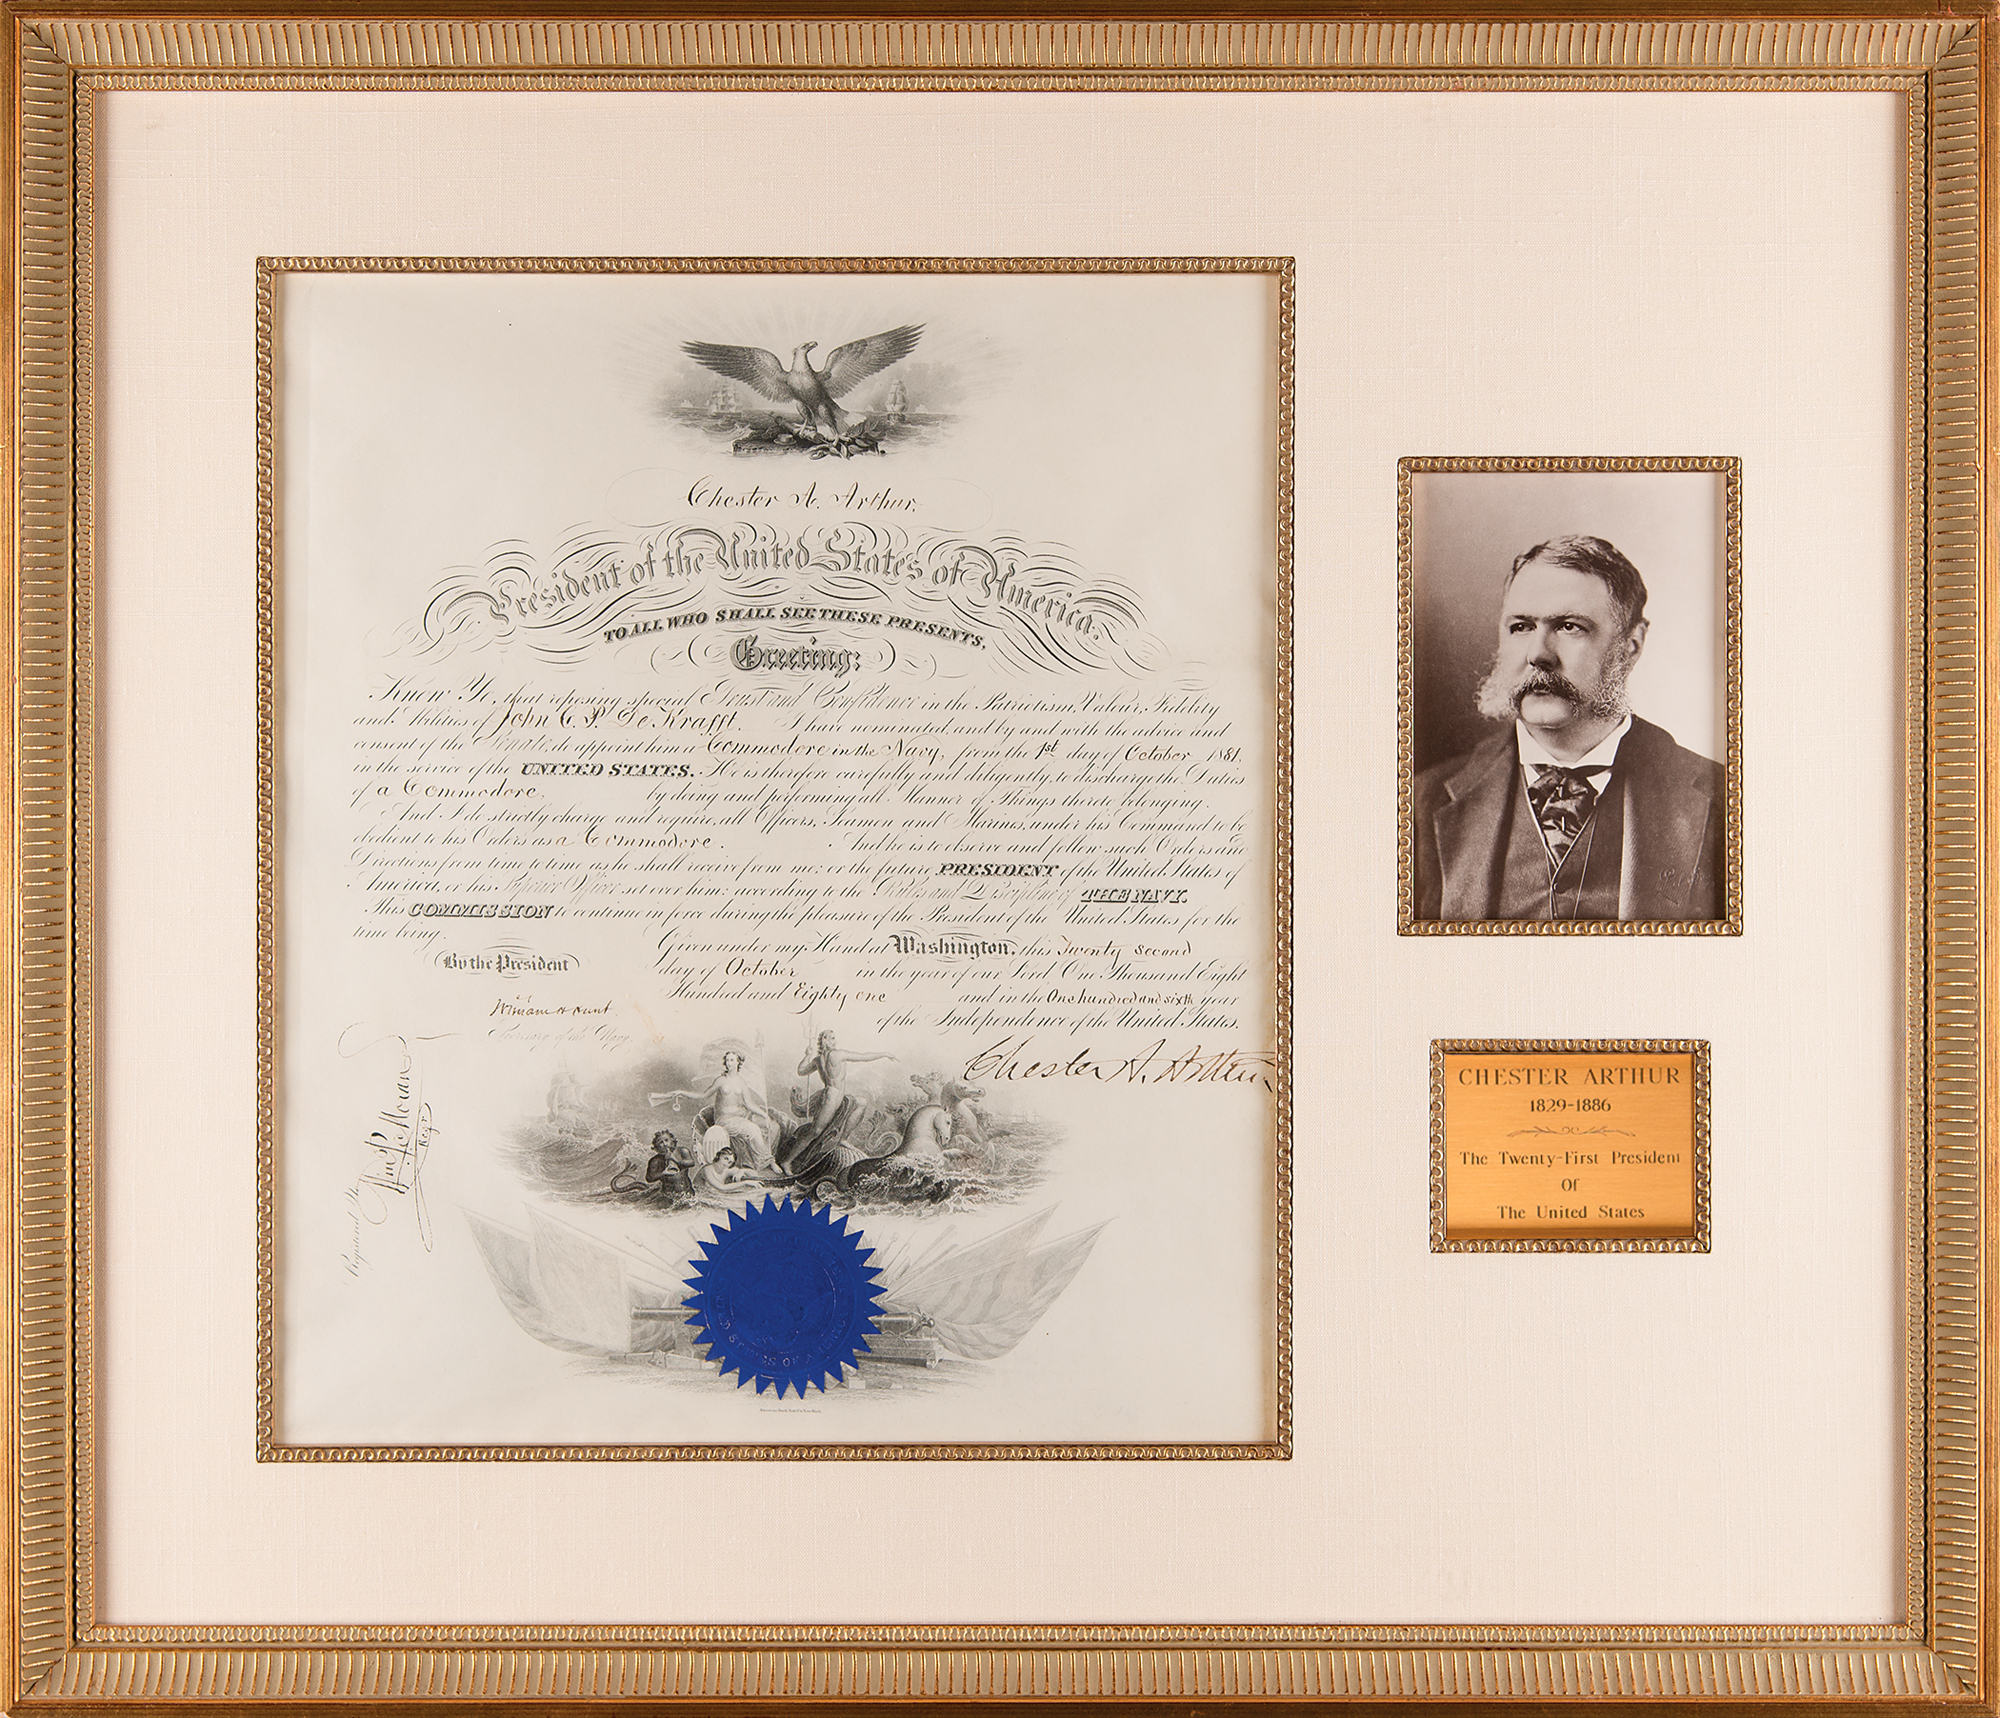 Chester A. Arthur,
President of the United States of America.
TO ALL WHO SHALL SEE THESE PRESENTS,
Greeting:
Know Ye, that reposing special Trust and Confidence in the Patriotism, Valour, Fidelity
and Abilities of John C. P. De Krafft. I have nominated, and by and with the advice and
consent of the Senate, do appoint him a Commodore in the Navy, from the 1st day of October 1881,
in the service of the UNITED STATES. He is therefore carefully and diligently, to discharge the Duties
of a Commodore. by doing and performing all Manner of Things thereto belonging.
And I do strictly charge and require, all Officers, Seamen and Marines, under his Command to be
obedient to his Orders as a Commodore. And he is to observe and follow such Orders and
Directions from time to time as he shall receive from me; or the future PRESIDENT of the United States of
America, or his Superior Officer set over him; according to the Rules and Discipline of THE NAVY.
This COMMISSION to continue in force during the pleasure of the President of the United States for the
time being.
Given under my Hand at Washington, this Twenty second
day of October in the year of our Lord One Thousand Eight
Hundred and Eighty one and in the One hundred and sixth year
of the Independence of the United States.
By the President
William H Hunt.
Secretary of the Navy.
Chester A. Arthur
Registered
Regr
CHESTER ARTHUR
1829-1886
The Twenty-First President
Of
The United States